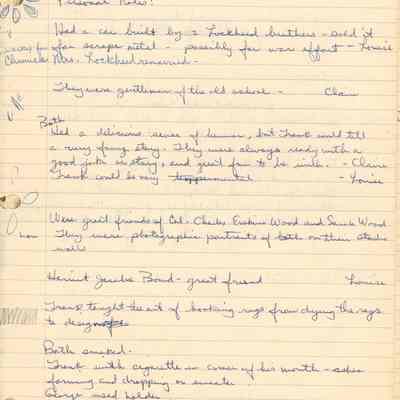 Personal Notes:
Had a car built by 2 Lockheed brothers - sold it
for scrape metal - possibly for war effort - Louise
Mrs. Lockheed remarried -
They were gentlemen of the old school - Claire
Both
Had a delicious sense of humor, but Frank could tell
a very funny story. They were always ready with a
good joke or story, and great fun to be with. - Claire
Frank could be very - Louise
Were great friends of Col. Charles Erskine Wood and Sara Wood
They were photographic portraits of both on their studio
walls
Harriet Jacobs Bond - great friend Louise
Frank taught the art of hooking rugs from dyeing the rags
to design
Both smoked.
Frank with cigarette in corner of his mouth - ashes
forming and dropping on sweater
George used holder